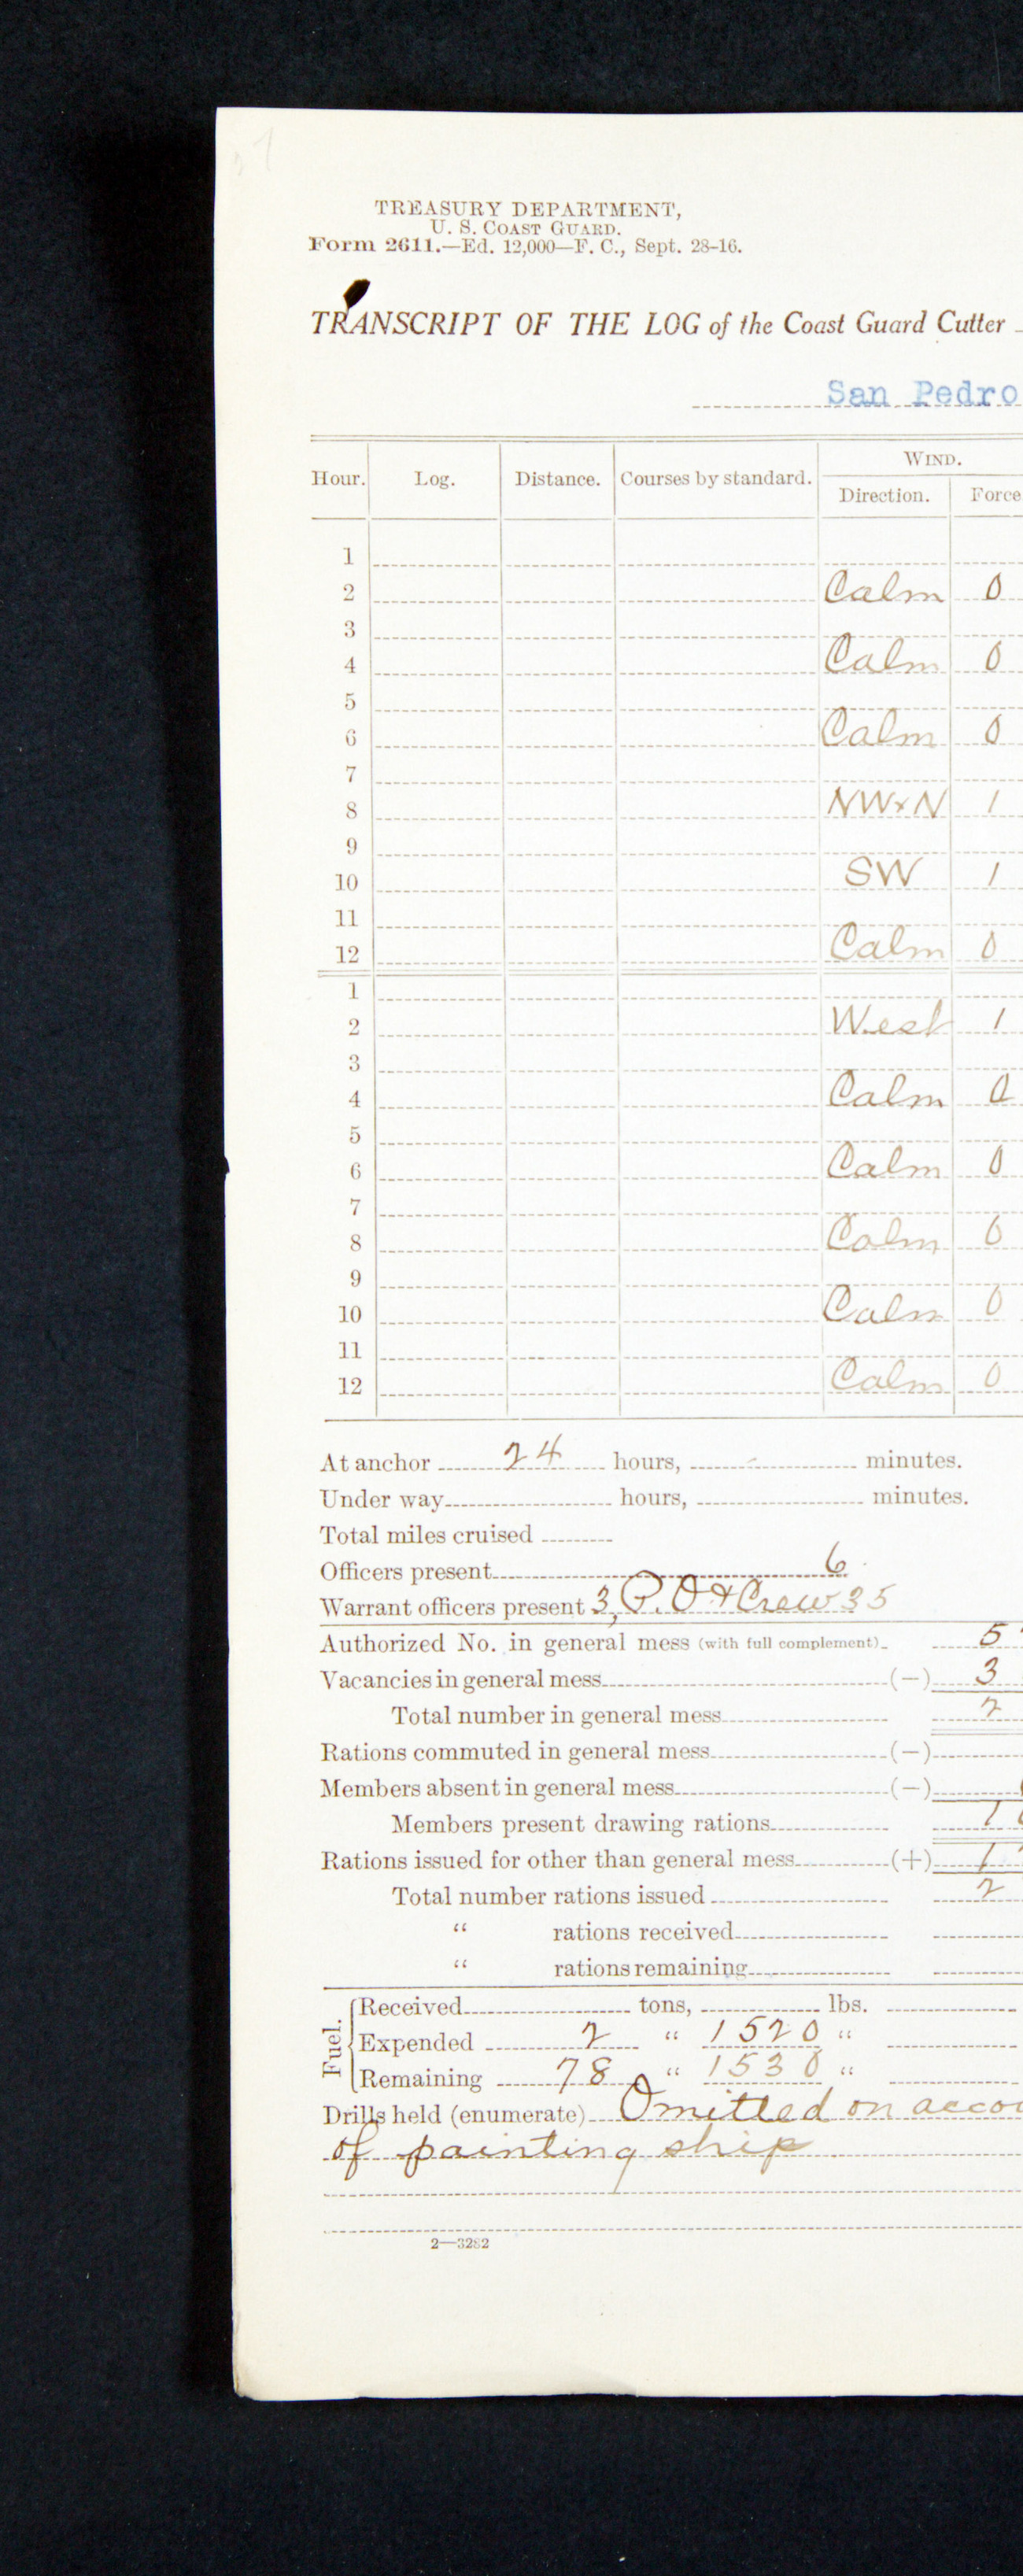 TREASURY DEPARTMENT,
U. S. COAST GUARD.
Form 2611.—Ed. 12,000—F. C., Sept. 28-16.
TRANSCRIPT OF THE LOG of the Coast Guard Cutter
San Pedro
Hour. Log. Distance. Courses by standard. WIND.
Direction. Force
1
2 Calm 0
3
4 Calm 0
5
6 Calm 0
7
8 NWxN 1
9
10 SW 1
11
12 Calm 0
1
2 West 1
3
4 Calm 0
5
6 Calm 0
7
8 Calm 0
9
10 Calm 0
11
12 Calm 0
At anchor 24 hours, - minutes.
Under way hours, minutes.
Total miles cruised
Officers present 6
Warrant officers present 3, P.O & Crew 35
Authorized No. in general mess (with full complement) 5
Vacancies in general mess (—) 3
Total number in general mess 2
Rations commuted in general mess (—)
Members absent in general mess (—)
Members present drawing rations 1
Rations issued for other than general mess (+) 1
Total number rations issued 2
“ rations received
“ rations remaining
Fuel. Received tons, lbs.
Expended 2 “ 1520 “
Remaining 78 “ 1530 “
Drills held (enumerate) Omitted on accou
of painting ship
2—3282